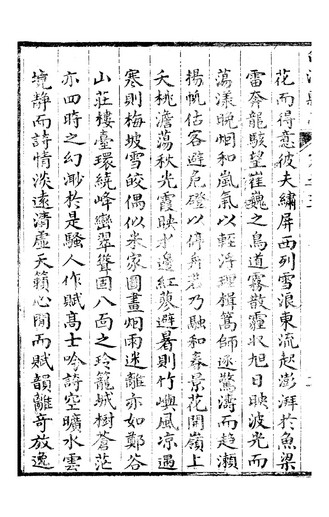 花而得意彼夫繡屏西列雪浪東流起澎湃於魚梁
雷奔龍駭望崔巍之鳥道霧散霾收旭日映波光而
蕩漾晚烟和嵐氣以輕浮理楫篙師逐驚濤而趨瀨
揚帆估客避危磴以停舟若乃融和春景花開嶺上
夭桃澹蕩秋光霞映水邊紅蓼避暑則竹嶼風凉遇
寒則梅坡雪皎偶似米家圖畫烟雨迷離亦如鄭谷
山莊樓臺環繞峰巒翠聳因八面之玲瓏城樹蒼茫
亦四時之幻渺於是騷人作賦高士吟詩空曠水雲
境静而詩情淡遠清虛天籟心閒而賦韻離奇放逸